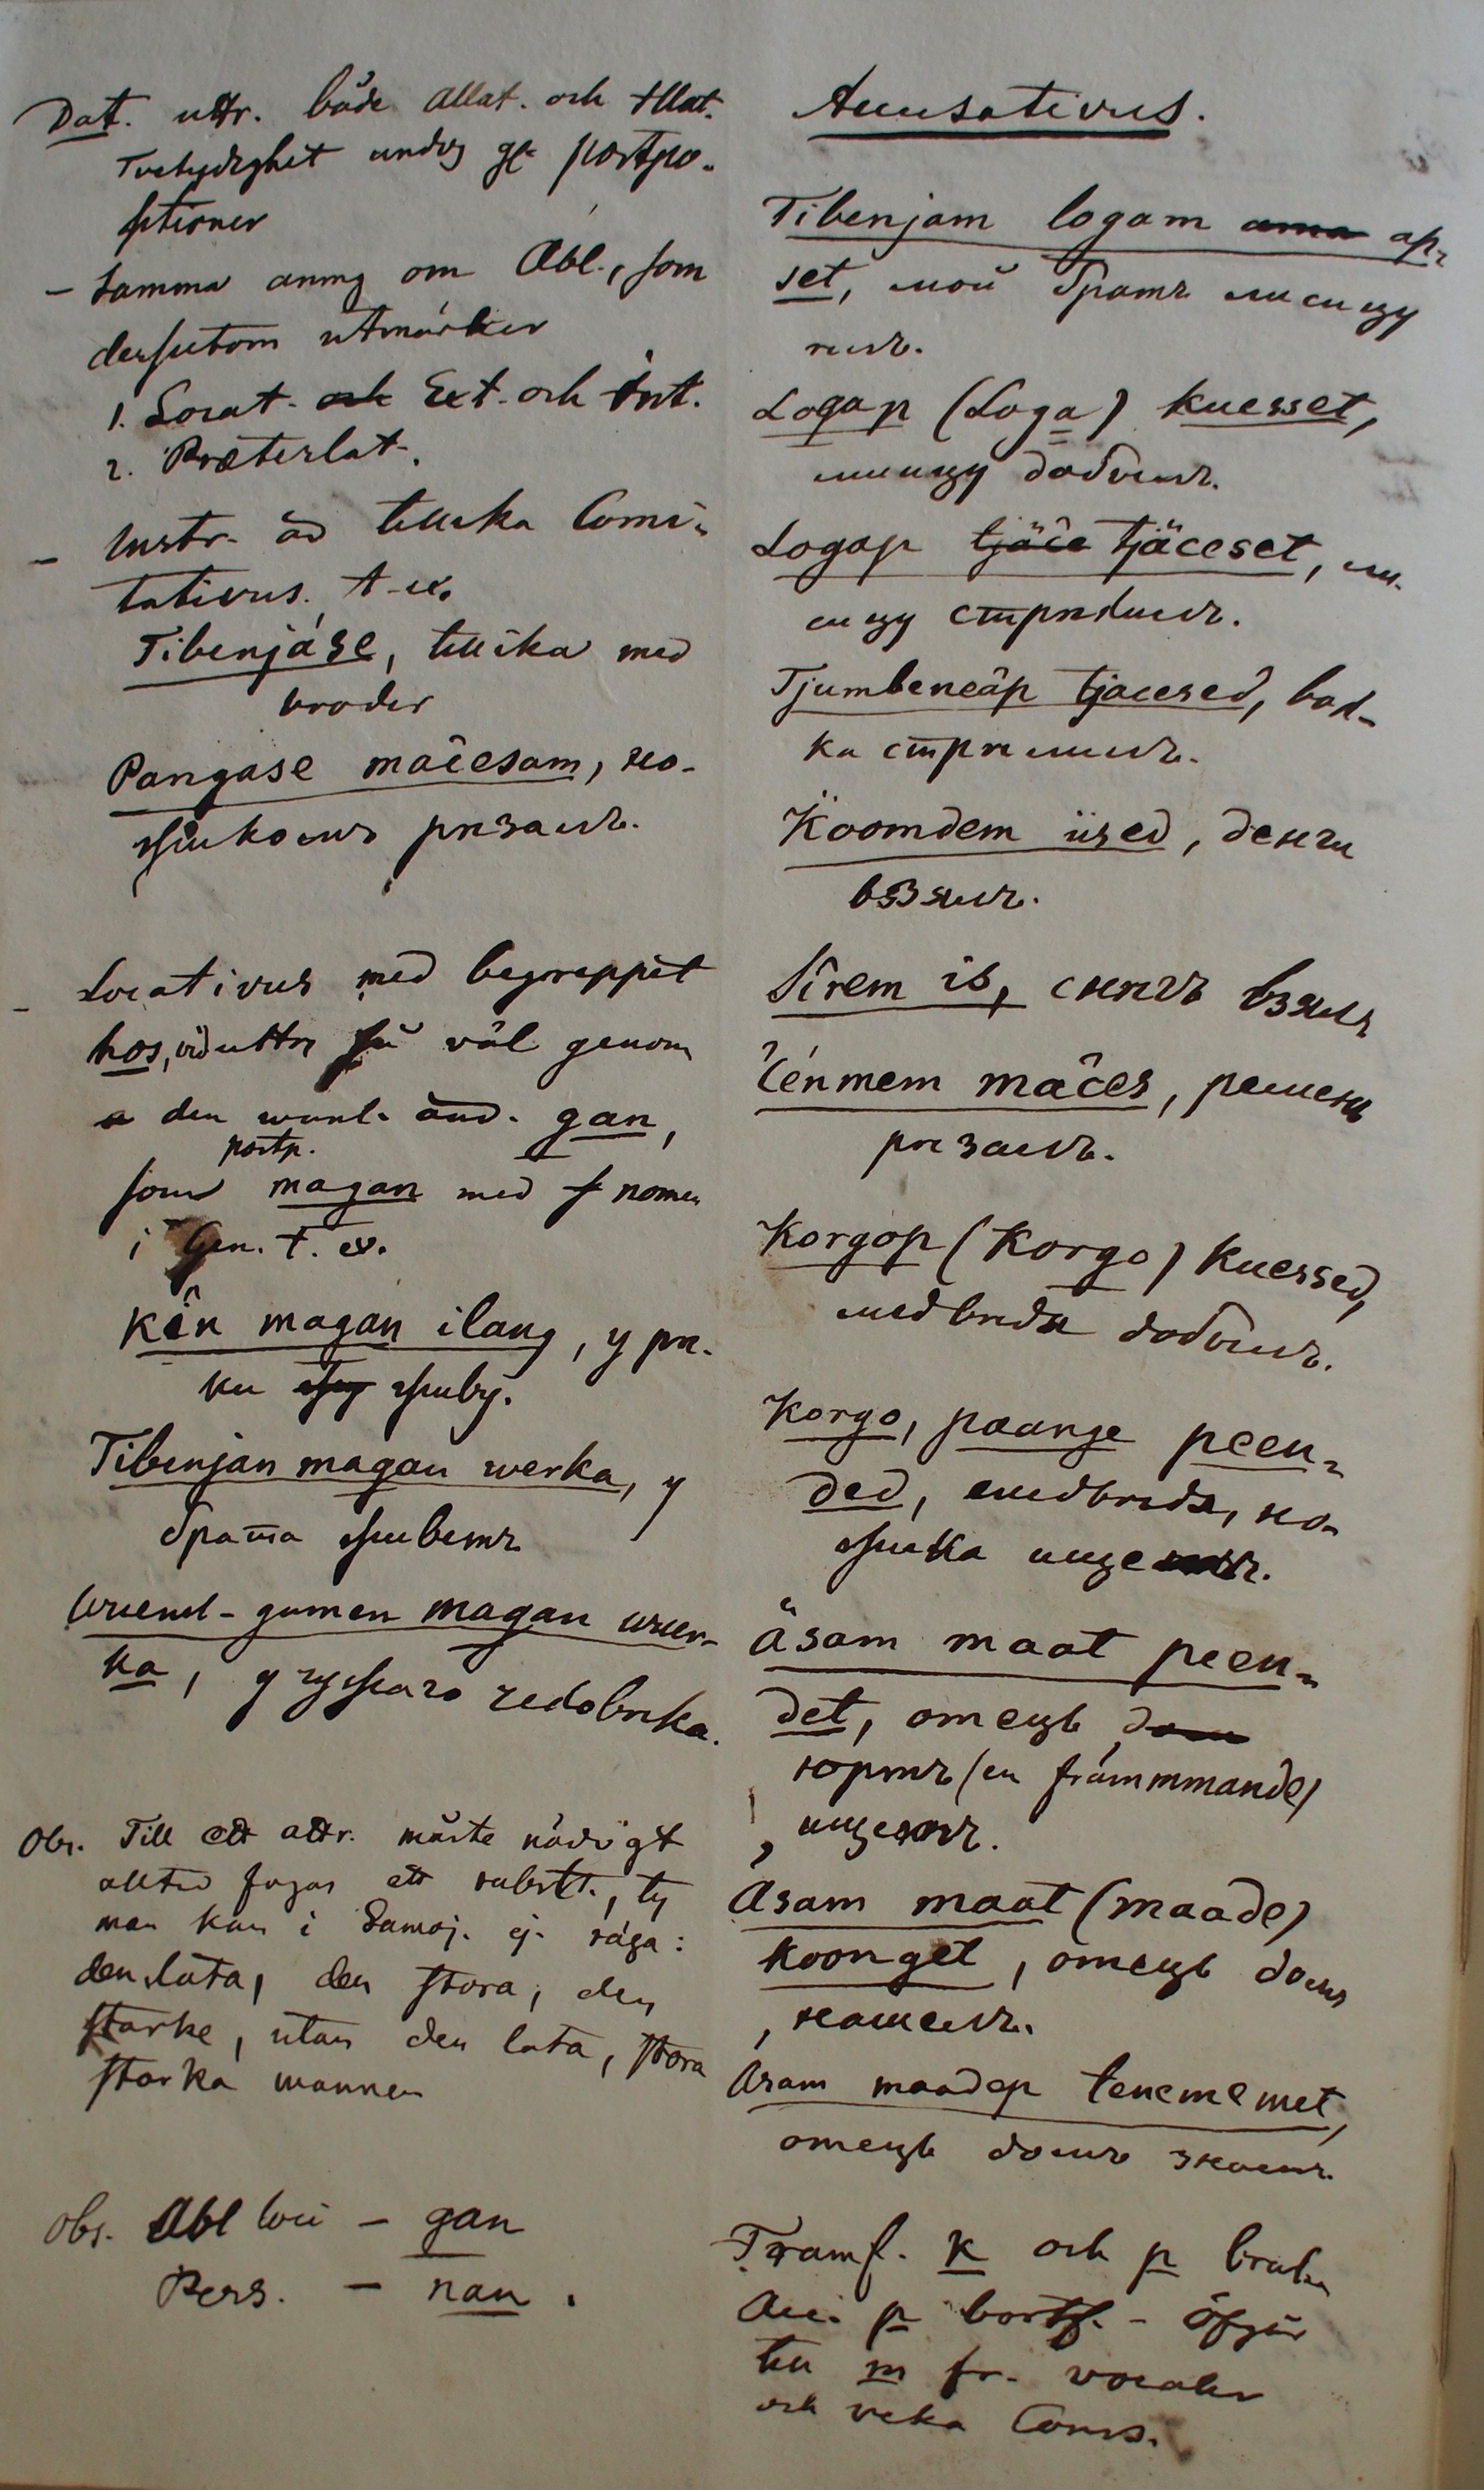 Dat. uttr. både Allat. och Illat.
Tvetydighet undvs gt postpo-
sitioner
– Samma anmg om Abl., som
dessutom utmärker
1. Locat. och Ext. och Int.
2. Præterlat.
– Instr. äd tillika Comi-
tativus. t. ex.
Tibenjáse, tillika med
broder
Pangase mâcesam, но-
жикомъ рѣзалъ.
– Locativus med begreppet
hos, uttr så väl genom
a den vanl. änd. gan,
postp.
som magan med nomen
i Gen. t. ex.
Kên magan ilang, у рѣ-
ки живу.
Tibenjan magan werka, у
брата живетъ
magan
ka, у человѣка.
Obs. Till ett attr. måste nödvigt
alltid fogas ett substt., ty
man kan i Samoj. ej säga:
den lata, den stora, den
starke, utan den lata, stora
starka mannen
Obs. Abl loci – gan
Pers. – nan.
Accusativus.
Tibenjam logam ama ap-
set, мой братъ лисицу
ѣлъ.
Logap (Loga) kuesset,
лисицу добылъ.
Logap tjäce tjäceset, ли-
сицу стрѣлилъ.
Tjumbeneäp tjacesed, вол-
ка стрѣлилъ.
Koomdem üsed, денги
взялъ.
Sîrem is, снѣгъ взялъ
Čénmem mâces, ремень
рѣзалъ.
Korgop (Korgo) kuessed,
медвѣдя добылъ.
Korgo, paange peen-
ded, медвѣдя, но-
жика ище
Äsam maat peen-
det, отецъ дом
юртъ (en främmmande)
ище
Asam maat (maade)
koonget, отецъ домъ
, нашелъ.
Asam maadep tenememet,
отецъ домъ
Framf. k och p bruka
Acc. p bortf. – öfgår
till m fr. vocaler
och veka Cons.